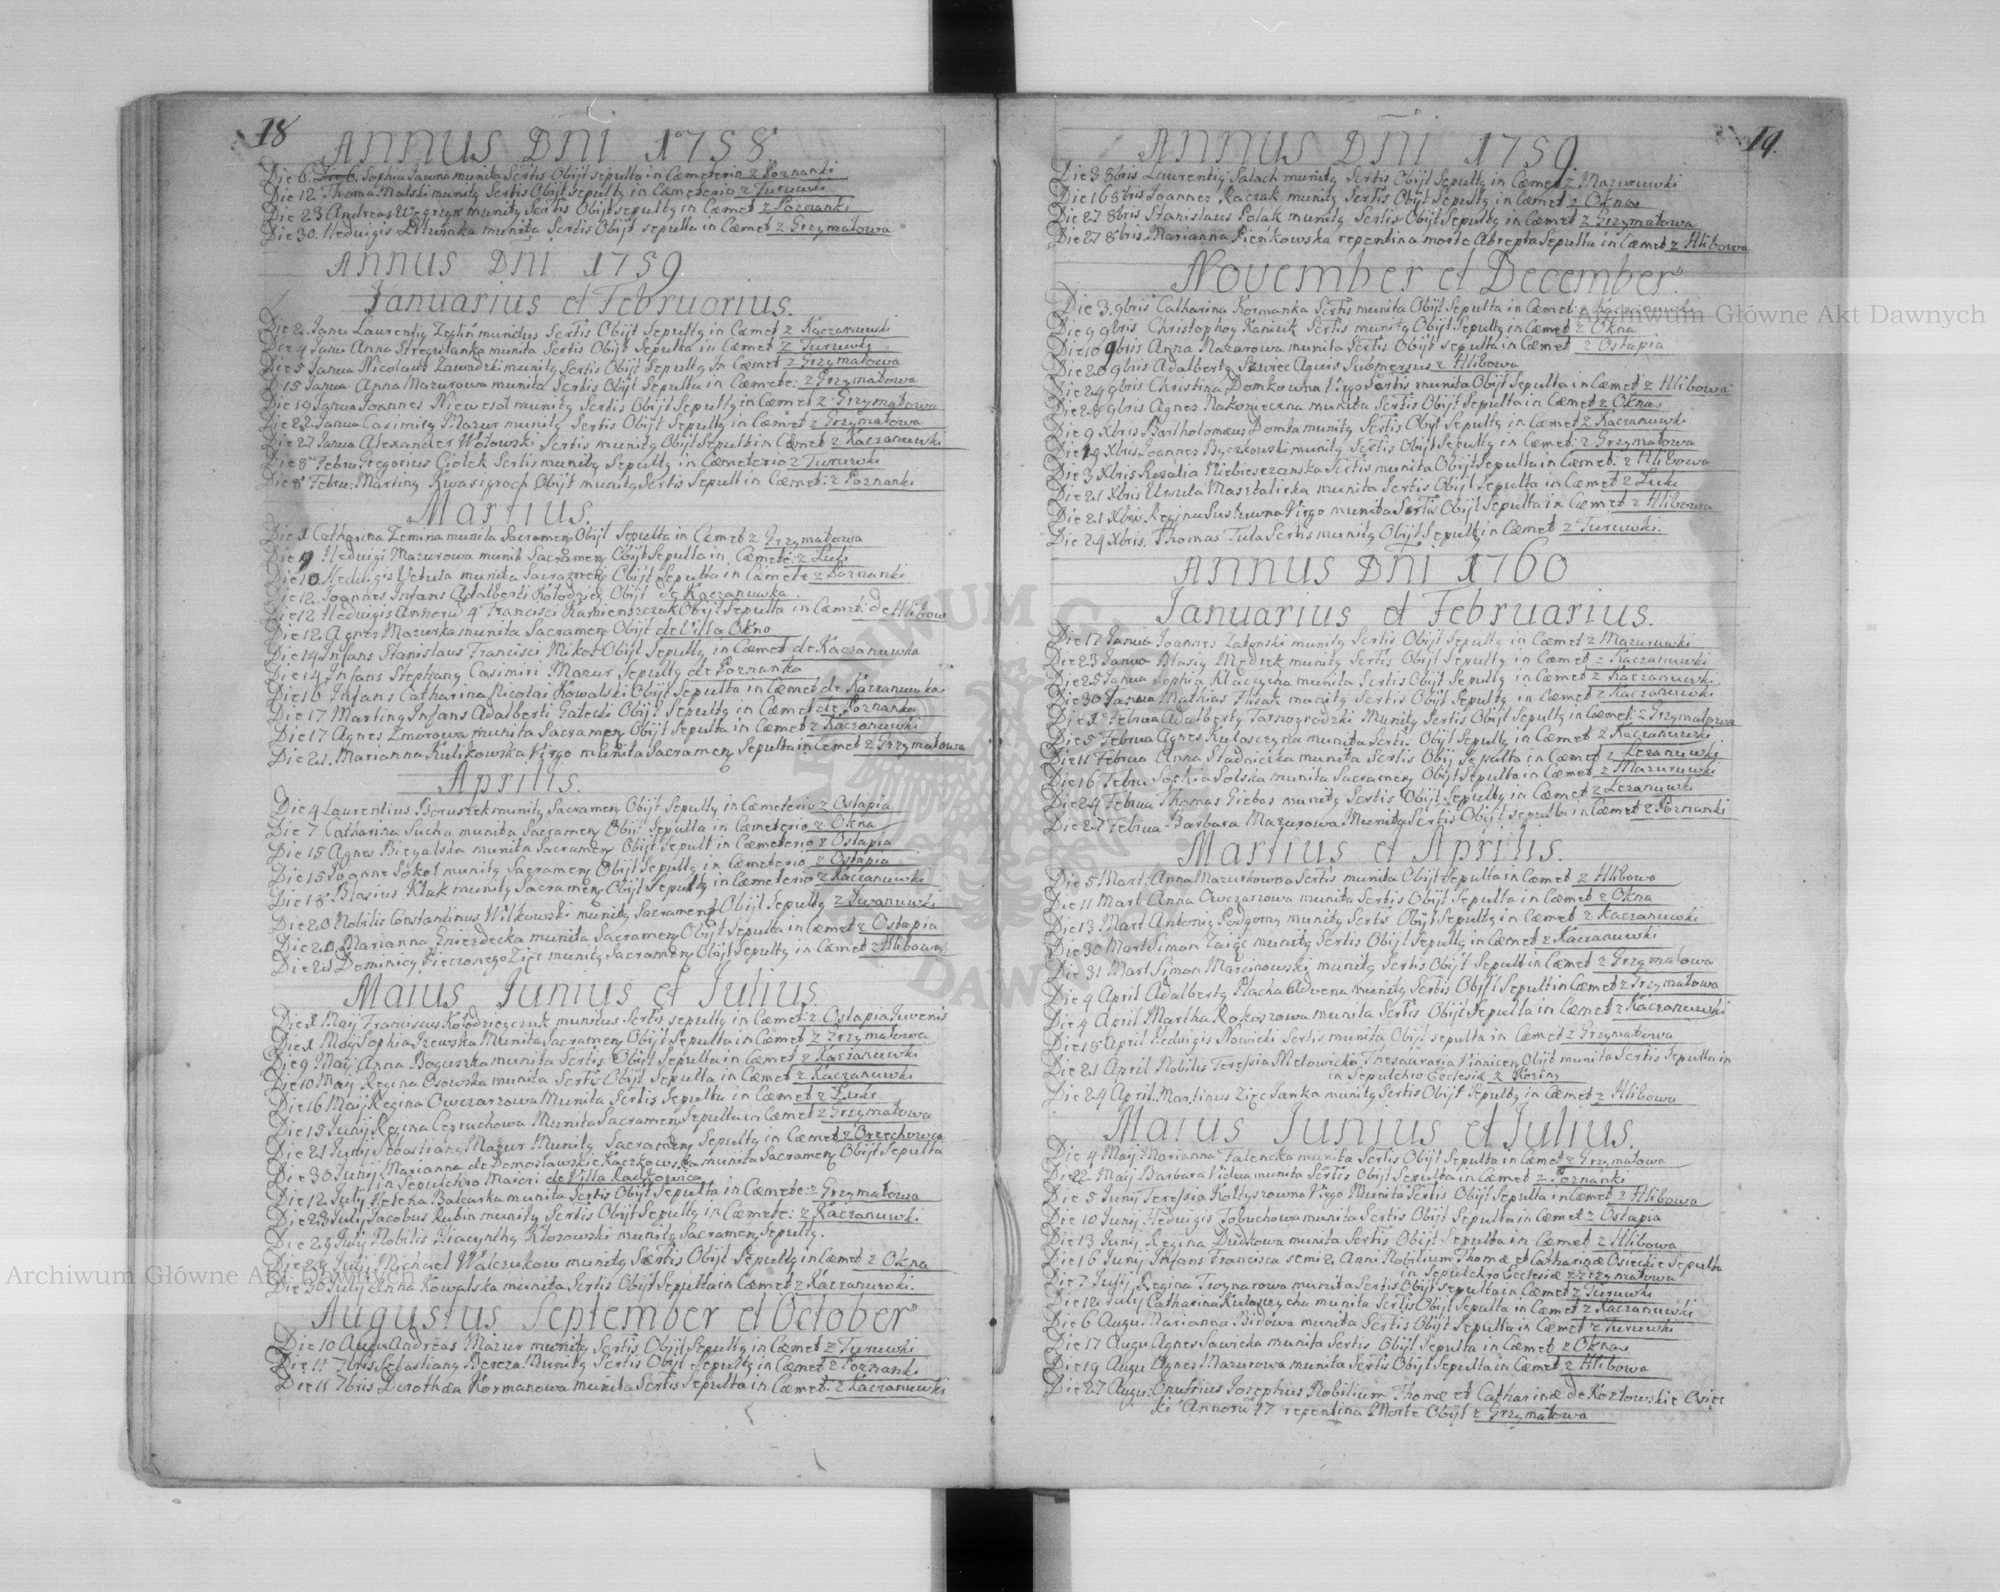 18
ANNUS DNI 1758
Die 6. Die 6. Sophia Sawna munita Sertis Obijt sepulta in Cæmeterio z Poznanki
Die 12 Thoma Malski munitq Sertis Obijt sepultq in Cæmeterio z Turuwki
Die 23 Andreas Węgrzyn munitq Sertis Obijt sepultq in Cæmet z Poznanki
Die 30. Hedvigis Litwinka munita Sertis Obijt sepulta in Cæmet z Grzymałowa
ANNUS DNI 1759
Januarius et Februarius.
Die 2. Janu Laurentiq munitus Sertis Obijt Sepultq in Cæmet z Kaczanuwki
Die 4 Janu Anna Strzyżanka munita Sertis Obijt Sepulta in Cæmet z Turuwki
Die 5 Janua Nicolaus Zawadzki munitq Sertis Obijt Sepultq In Cæmet z Grzymałowa
Die 15 Janua Anna Mazurowa munita Sertis Obijt Sepulta in Cæmete: z Grzymałowa
Die 19 Janua Joannes Niewesoł munitq Sertis Obijt Sepultq in Cæmet z Grzymałowa
Die 22 Janua Casimirq Mazur munitq Sertis Obijt Sepultq in Cæmet z Grzymałowa
Die 27 Janua Alexander Wołowski Sertis munitq Obijt Sepult in Cæmet z Kaczanuwki
Die 8 Febru Gregorius Ciołek Sertis munitq Sepultq in Cæmeterio z Turuwki
Die 8 Febru: Martinq Kwasigroch Obijt munitq Sertis Sepult in Cæmet: z Poznanki
Martius.
Die 1 Catharina Zemina munita Sacramen Obijt Sepulta in Cæmet z Grzymałowa
Die 9 Hedvigi Mazurowa munit Sacramen Obijt Sepulta in Cæmete: z Łuki
Die 10 Hedvigis Vetula munita Sacramen Obijt Sepulta in Cæmete z Poznanki
Die 12. Joannes Infans Adalberti Kołodziej Obijt de Kaczanuwka.
Die 12 Hedvigis Annoru 4 Francisci Kamienszczak Obijt Sepulta in Cæmet: de Hlibow
Die 12. Agnes Mazurka munita Sacramen Obijt de Villa Okno
Die 14 Infans Stanislaus Francisci Mikos Obijt Sepultq in Cæmet de Kaczanuwka
Die 14 Infans Stephanq Casimiri Mazur Sepultq de Poznanka
Die 16 Infans Catharina Nicolai Kowalski Obijt Sepulta in Cæmet de Kaczanuwka
Die 17 Martinq Infans Adalberti Gałecki Obijt Sepultq in Cæmet de Poznanka
Die 17 Agnes Zmorowa munita Sacramen Obijt Sepulta in Cæmet z Kaczanuwki
Die 21. Marianna Kulikowska Virgo munita Sacramen Sepulta in Cæmet z Grzymałowa
Aprilis.
Die 4 Laurentius Boruszek munitq Sacramen Obijt Sepultq in Cæmeterio z Ostapia
Die 7 Catharina Sucha munita Sacramen Obijt Sepulta in Cæmeterio z Okna
Die 15 Agnes Biegalska munita Sacramen Obijt Sepult in Cæmeterio z Ostapia
Die 15 Joanne Sokoł munitq Sacramen Obijt Sepultq in Cæmeterio z Ostapia
Die 18 Blasius Kłak munitq Sacramen Obijt Sepultq in Cæmeterio z Kaczanuwki
Die 20 Nobilis Constantinus Wilkowski munitq Sacramen Obijt Sepultq z Iwanuwki
Die 20. Marianna Gniezdecka munita Sacramen Obijt Sepulta in Cæmet z Ostapia
Die 21 Dominicq Pieczonego Zięć munitq Sacramen Obijt Sepultq in Cæmet z Hlibowa
Maius Junius et Julius
Die 1 Maij Franciscus Kołodzieyczuk munitus Sertis sepultq in Cæmet: z Ostapia Juvenis
Die 1 Maij Sophia Jzewska Munita Sacramen Obijt Sepulta in Cæmet z Grzymałowa
Die 9 Maij Anna Boguszka munita Sertis Obijt Sepulta in Cæmet z Kaczanuwki
Die 10 Maij Regina Osowska munita Sertis Obijt Sepulta in Cæmet z Kaczanuwki
Die 16 Maij Regina Owczarzowa Munita Sertis Sepulta in Cæmet z Łuki
Die 15 Junij Regina Cepuchowa Munita Sacramen Sepulta in Cæmet z Grzymałowa
Die 21 Junij Sebastianq Mazur Munitq Sacramen Sepultq in Cæmet z Orzechowca
Die 30 Junij Marianna de Domosławskie Kaczkowska munita Sacramen Obijt Sepulta
in Sepulchro Maiori de Villa Raćkowica
Die 12 July Hełcka Balcarka munita Sertis Obijt Sepulta in Cæmete: z Grzymałowa
Die 23 Julij Jacobus Rubin munitq Sertis Obijt Sepultq in Cæmete: z Kaczanuwki
Die 24 Julij Nobilis Hiacynthq Kłosowski munitq Sacramen Sepultq.
Die 28 Julij Michael Walczukow munitq Sertis Obijt Sepultq in Cæmet z Okna
Die 30 Julij Anna Kowalska munita Sertis Obijt Sepulta in Cæmet z Kaczanuwki.
Augustus September et October
Die 10 Augu Andreas Mazur munitq Sertis Obijt Sepultq in Cæmet z Turuwki
Die 11 7bris Sebastianq Bereza Munitq Sertis Obijt Sepultq in Cæmet z Poznanki
Die 11 7bris Dorothea Kormanowa munita Sertis Sepulta in Cæmet: z Kaczanuwki
19.
ANNUS DNI 1759
Die 3 8bris Laurentiq Sałach munitq Sertis Obijt Sepultq in Cæmet z Mazuruwki
Die 16 8bris Joannes Kaczak munitq Sertis Obijt Sepultq in Cæmet z Okna
Die 27 8bris Stanislaus Polak munitq Sertis Obijt Sepultq in Cæmet z Grzymałowa
Die 27 8bris. Marianna Pieńkowska repentina morte Abrepta Sepulta in Cæmet z Hlibowa
November et December
Die 3. 9bris Catharina Kormanka Sertis munita Obijt Sepulta in Cæmet: z Kaczanuwki
Die 9 9bris Christophoq Kaniuk Sertis munitq Obijt Sepultq in Cæmet z Okna
Die 10 9bris Anna Nazarowa munita Sertis Obijt Sepulta in Cæmet z Ostapia
Die 20 9bris Adalbertq Szwiec Aquis Submersus z Hlibowa
Die 24 9bris Christina Domkowna Virgo Sertis munita Obijt Sepulta in Cæmet z Hlibowa
Die 28 9bris Agnes Nakonieczna munita Sertis Obijt Sepulta in Cæmet z Okna
Die 9 Xbris Bartholomæus Domka munitq Sertis Obijt Sepultq in Cæmet z Kaczanuwki
Die 19 Xbris Joannes Byczkowski munitq Sertis Obijt Sepultq in Cæmet: z Grzymałowa
Die 3 Xbris Rosalia Niebieszczanska Sertis munita Obijt Sepulta in Cæmet: z Hlibowa
Die 21 Xbris Ursula Masztalirka munita Sertis Obijt Sepulta in Cæmet z Łuki
Die 21 Xbris Regina Sustuwna Virgo munita Sertis Obijt Sepulta in Cæmet z Hlibowa
Die 24 Xbris. Thomas Tula Sertis munitq Obijt Sepultq in Cæmet z Turuwki.
ANNUS DNI 1760
Januarius et Februarius.
Die 17 Janua Joannes Załonski munitq Sertis Obijt Sepultq in Cæmet z Mazuruwki
Die 23 Janua Blasiq Mędrek munitq Sertis Obijt Sepultq in Cæmet z Kaczanuwki
Die 25 Janua Sophia Kłaczycha munita Sertis Obijt Sepulta in Cæmet z Kaczanuwki
Die 30 Janua Mathias Flisak munitq Sertis Obijt Sepultq in Cæmet z Kaczanuwki
Die 1 Februa Adalbertq Tarnogrodzki Munitq Sertis Obijt Sepultq in Cæmet: z Grzymałowa
Die 5 Februa Agnes Kułasczyna munita Sertis Obijt Sepulta in Cæmet z Kaczanuwki
Die 11 Februa Anna Stadniczka munita Sertis Obij Sepulta in Cæmet z Lezanuwki
Die 16 Febru Sophia Solska munita Sacramen Obijt Sepulta in Cæmet z Mazuruwki
Die 24 Februa Thomas Giebas munitq Sertis Obijt Sepultq in Cæmet z Lezanuwki
Die 27 Februa Barbara Mazurowa Munita Sertis Obijt Sepulta in Cæmet z Poznanki
Martius et Aprilis.
Die 5 Mart Anna Mazurkowna Sertis munita Obijt Sepulta in Cæmet z Hlibowa
Die 11 Mart Anna Owczarzowa munita Sertis Obijt Sepulta in Cæmet z Okna
Die 13 Mart Antoniq Podgorny munitq Sertis Obijt Sepultq in Cæmet z Kaczanuwki
Die 30 Mart Simon Zaiąc munitq Sertis Obijt Sepultq in Cæmet z Kaczanuwki
Die 31 Mart Simon Marcinowski munitq Sertis Obijt Sepult in Cæmet z Grzymałowa
Die 4 April Adalbertq Płacha Advena munitq Sertis Obijt Sepult in Cæmet z Grzymałowa
Die 4 April Martha Rokoszowa munita Sertis Obijt Sepulta in Cæmet z Kaczanuwki
Die 18 April Hedvigis Nowicki Sertis munita Obijt sepulta in Cæmet z Grzymałowa
Die 21 April Nobilis Teressia Nietowicka Thesauraria Vinnicen Obijt munita Sertis Sepulta in
in Sepulchro Ecclesiæ z Koziny
Die 24 April Martinus Zięć Janka munitq Sertis Obijt Sepultq in Cæmet z Hlibowa
Maius Junius et Julius.
Die 4 Maij Marianna Falencka munita Sertis Obijt Sepulta in Cæmet z Grzymałowa
Die 22 Maij Barbara Vidua munita Sertis Obijt Sepulta in Cæmet z Poznanki
Die 5 Junij Teressia Kołtyszowna Virgo Munita Sertis Obijt Sepulta in Cæmet z Hlibowa
Die 10 Junij Hedvigis Tobuchowa munita Sertis Obijt Sepulta in Cæmet z Ostapia
Die 13 Junij Regina Dudkowa munita Sertis Obijt Sepulta in Cæmet z Hlibowa
Die 16 Junij Infans Francisca semi 2 Anni Nobilium Thomæ et Catharinæ Osieckie Sepulta
in Sepulchro Ecclesiæ z Grzymałowa
Die 7 Julij Regina Troynarowa munita Sertis Obijt Sepulta in Cæmet z Turuwki
Die 12 July Catharina Kułasczycha munita Sertis Obijt Sepulta in Cæmet z Kaczanuwki
Die 6 Augu Marianna Bidowa munita Sertis Obijt Sepulta in Cæmet z Turuwki
Die 17 Augu Agnes Sawicka munita Sertis Obijt Sepulta in Cæmet z Okna
Die 19 Augu Agnes Mazurowa munita Sertis Obijt Sepulta in Cæmet z Hlibowa
Die 27 Augu: Onufrius Josephus Nobilium Thomæ et Catharinæ de Kozłowskie Osiec
ki Annoru 17 repentina Morte Obijt z Grzymałowa
Archiwum Główne Akt Dawnych
Archiwum Główne Akt Dawnych